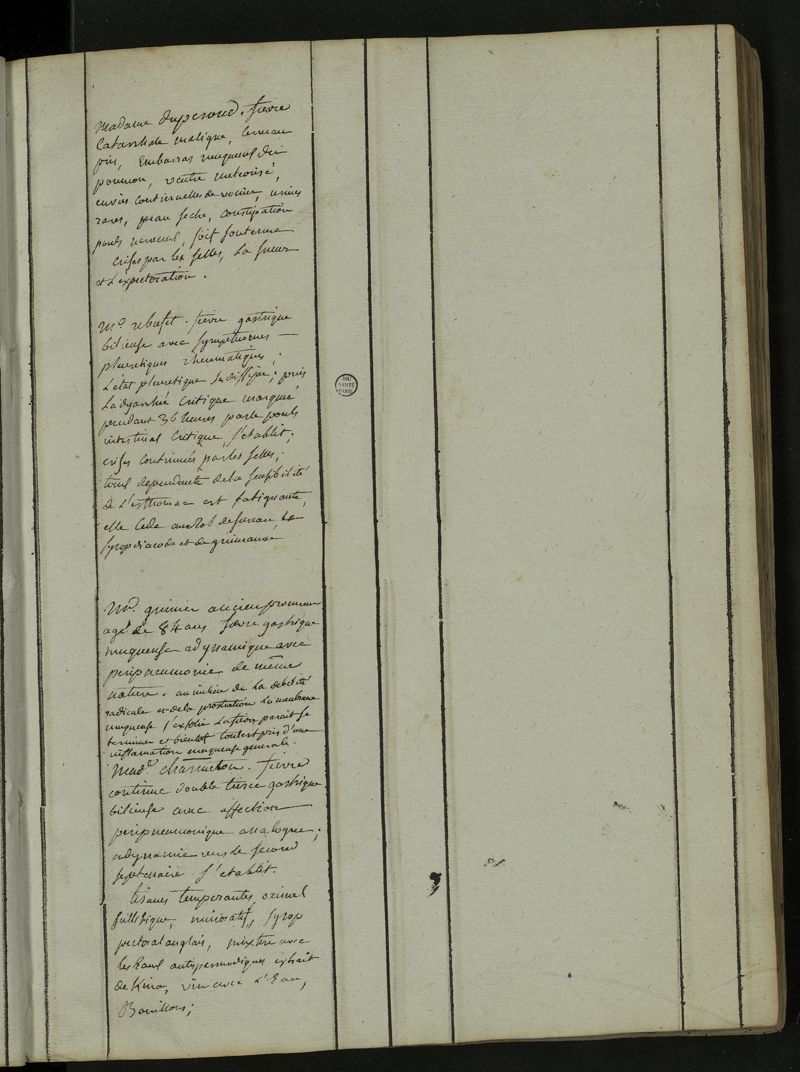 Madame duperoud. fievre
Catarrhale maligne, cerveau
pris, Embarras muqueux du
poumon, ventre meteorisé,
envies continuelles de vomir, urines
rares, peau seche, constipation
pouls nerveux, soif soutenue
crises par les selles, la sueur
et L'expectoration.
Mr. rebufet. fievre gastrique
bilieuse avec symptomes
pleuretiques rheumatiques;
L'état pleuretique se dissipe; puis
La dyarrhée critique marquée
pendant 36 heures par le pouls
intestinal critique, s'etablit;
crises continuées par les selles;
toux dependante de la sensibilité
de L'esthomac est fatiguante,
elle cede au rob de sureau, et
syrop diacode et de guimauve
Mr. grenier ancien procureur
agé de 84 ans fievre gastrique
muqueuse adynamique avec
peripneumonie de même
nature. au milieu de La debilité
radicale et de la prostration La membrane
muqueuse s'exfolie La fievre parait se
terminer et bientot tout est pris d'une
inflamation muqueuse generale.
Made. charreton. fievre
continue double tierce gastrique
bilieuse avec affection
peripneumonique analogue;
adynamie vers le second
septenaire s'etablit.
tisanes temperantes, oximel
scillitique, minoratifs, syrop
pectoral anglais, mixture avec
les Eaux antispasmodiques extrait
de Kina, vin avec L'Eau,
Bouillons;
BIU
SANTÉ
PARIS